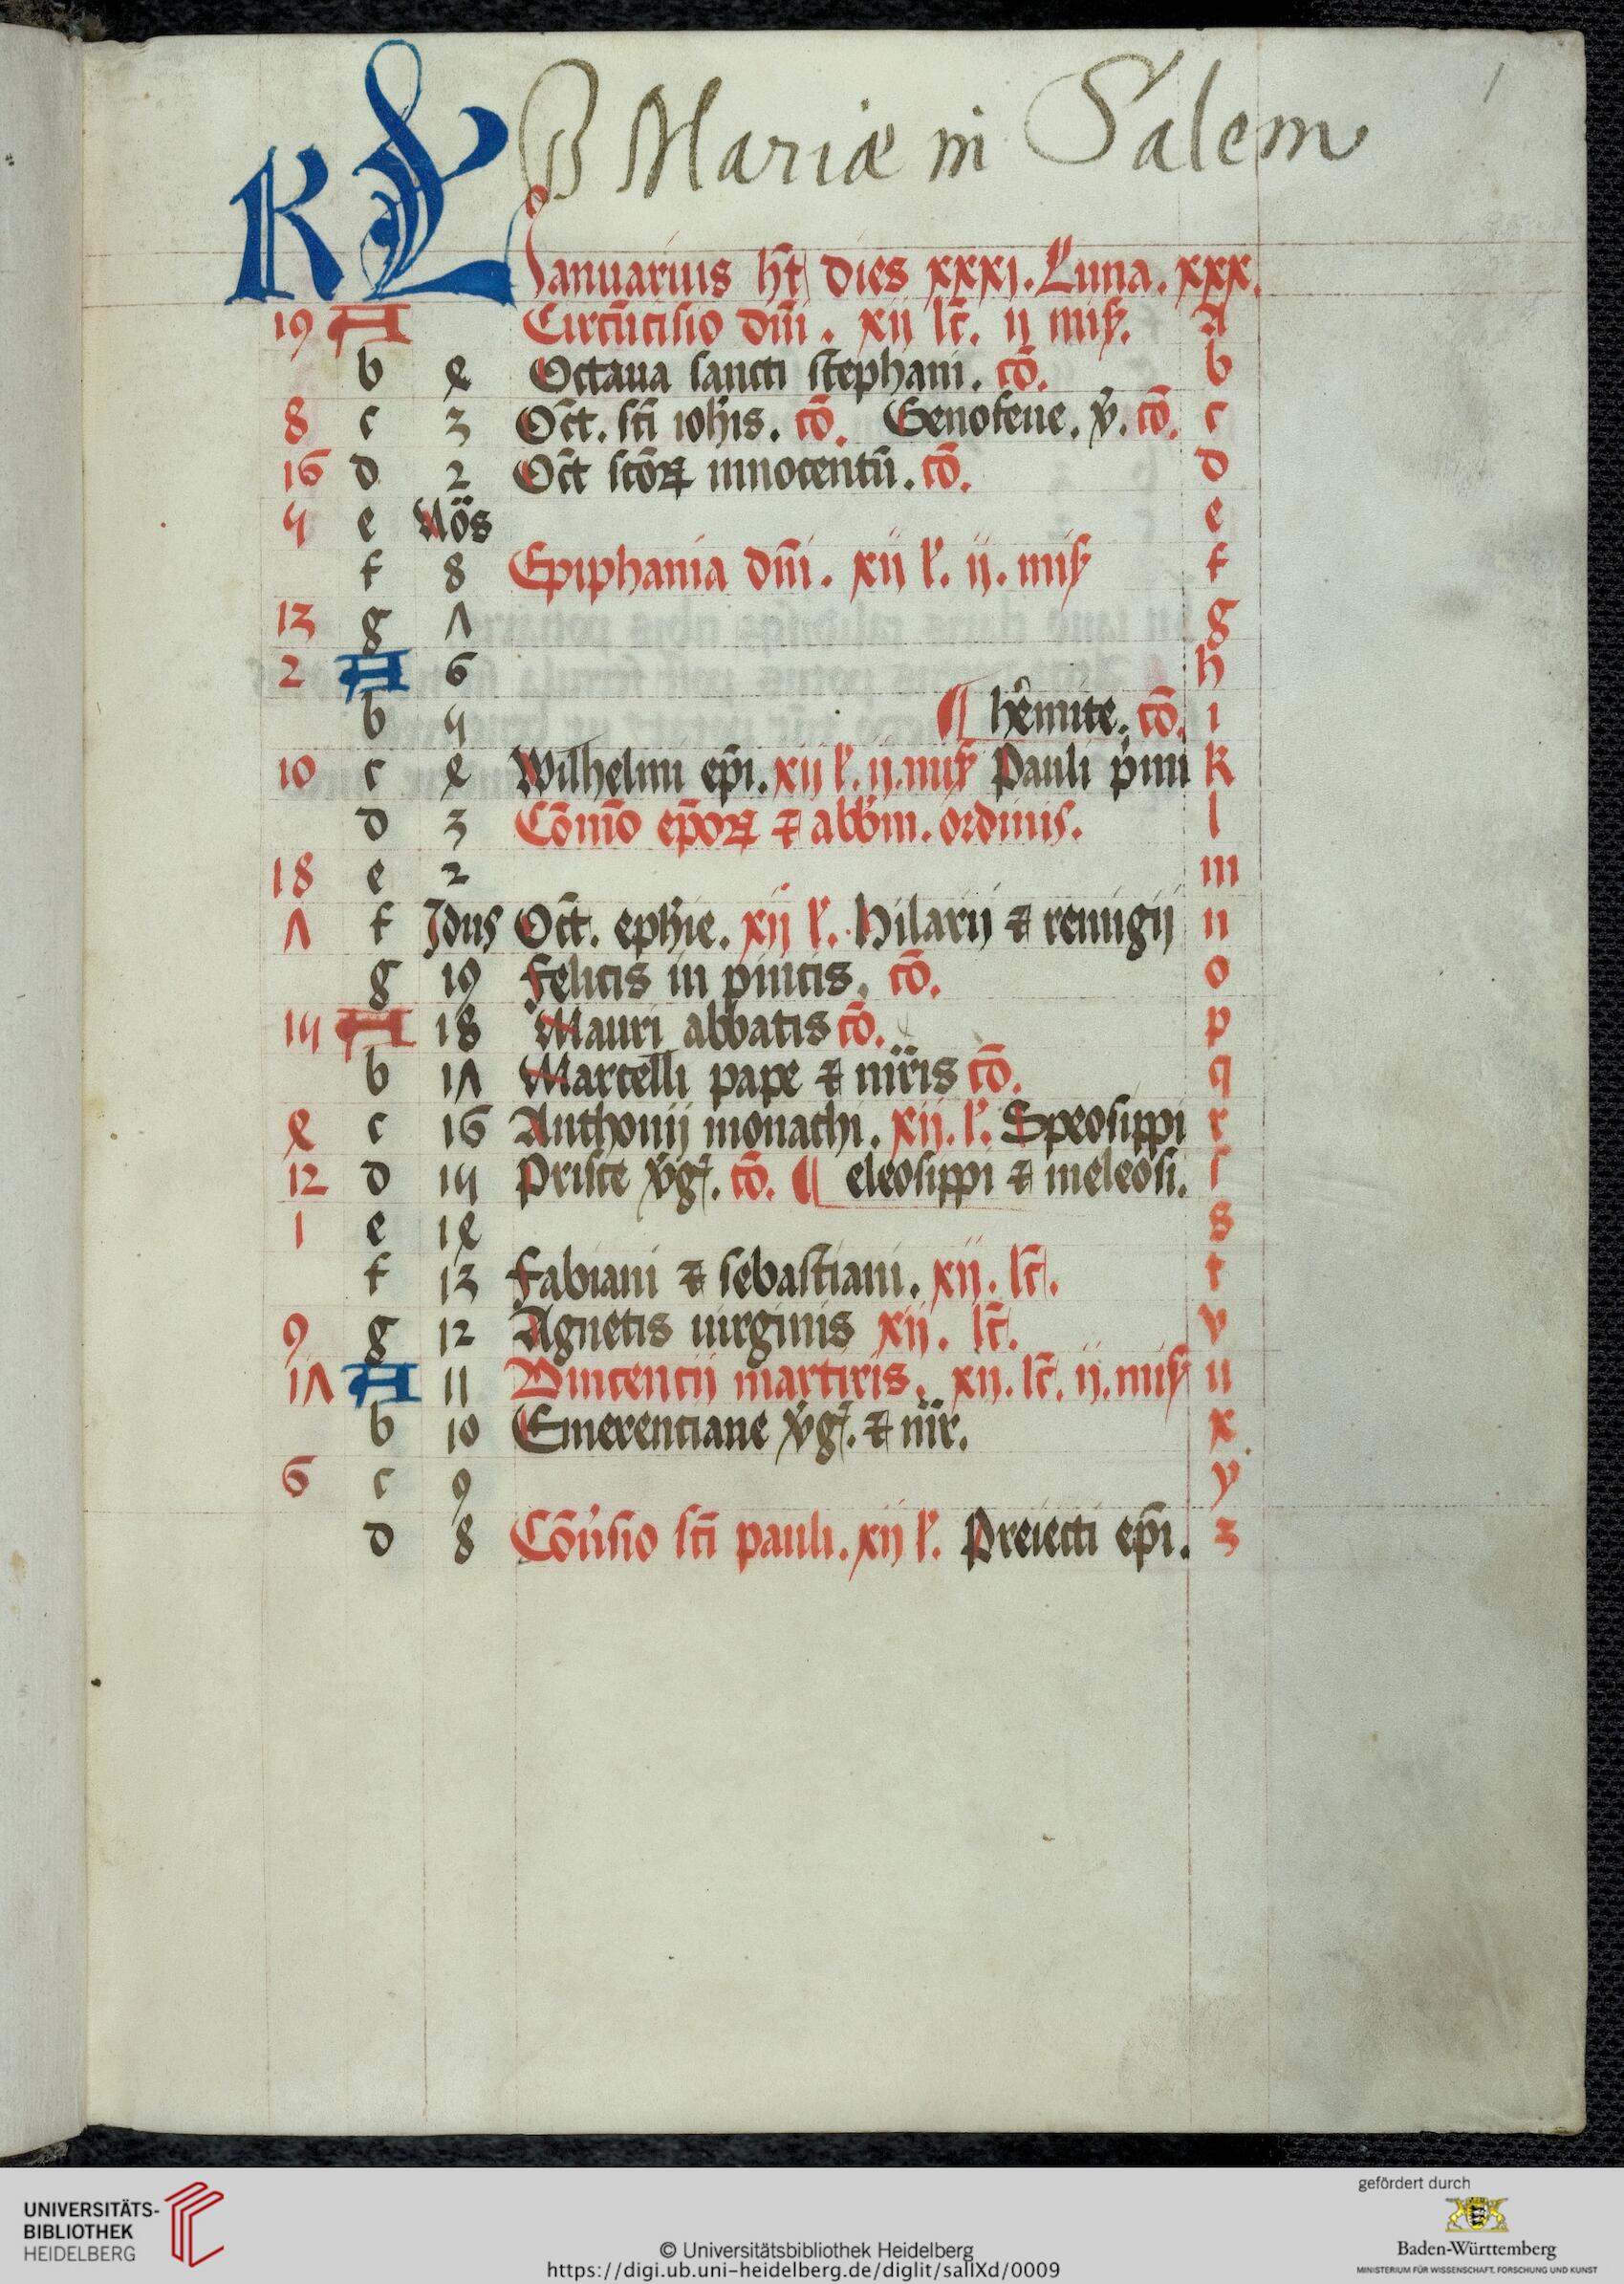 B Mariæ in Salem
1
KL Januarius ht̄ dies xxxi. Luna. xxx.
19 A Circūcisio dn̄i. xii lc̄. ii mis. A
b 4 Octaua sancti stephani. cō. b
8 c 3 Oct̄. sc̄i ioh̄is. cō. Genofeue. v̄. cō. c
16 d 2 Oct̄ sc̄oꝝ innocentū. cō. d
5 e Nōs e
f 8 Epiphania dn̄i. xii l'. ii. mis f
13 g 7 g
2 A 6 h
b 5 ¶ h'emite. cō. i
10 c 4 Wilhelmi ep̄i. xii l'. ii. mis Pauli p'mi k
d 3 Cōmō ep̄oꝝ ⁊ abb̄m. ordinis. l
18 e 2 m
7 f Idus Oct̄. eph̄ie. xii l'. Hilarii ⁊ remigij n
g 19 Felicis in pincis. cō. o
15 A 18 Mauri abbatis cō. p
b 17 Marcelli pape ⁊ mr̄is cō. q
4 c 16 Anthonij monachi. xii. l'. Speosippi r
12 d 15 Prisce v'g͛. cō. ¶ eleosippi ⁊ meleosi. ſ
1 e 14 s
f 13 Fabiani ⁊ sebastiani. xii. lc̄. t
9 g 12 Agnetis uirginis xij. lc̄. v
17 A 11 Vincencij martiris. xij. lc̄. ij. mis u
b 10 Emerenciane v'g͛. ⁊ mr̄. x
6 c 9 y
d 8 Cōu'sio sc̄i pauli. xij l'. Preiecti ep̄i. z
UNIVERSITÄTS-
BIBLIOTHEK
HEIDELBERG
© Universitätsbibliothek Heidelberg
https://digi.ub.uni-heidelberg.de/diglit/salIXd/0009
gefördert durch
Baden-Württemberg
MINISTERIUM FÜR WISSENSCHAFT, FORSCHUNG UND KUNST